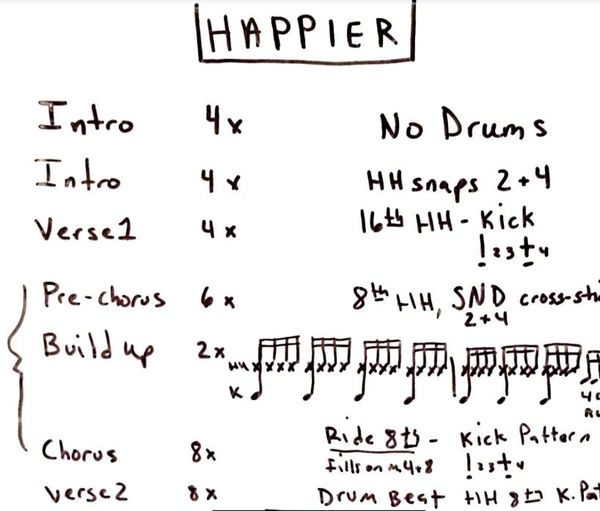 HAPPIER
Intro 4x No Drums
Intro 4x HH snaps 2+4
Verse1 4x 16th HH - Kick
1 2 3 + 4
Pre-chorus 6x 8th HH, SND cross-sti
2+4
Build up 2x HH
K
Chorus 8x Ride 8ths - Kick Pattern
fills on m 4+8 1 2 3 + 4
Verse2 8x Drum Beat HH 8th K. Pat